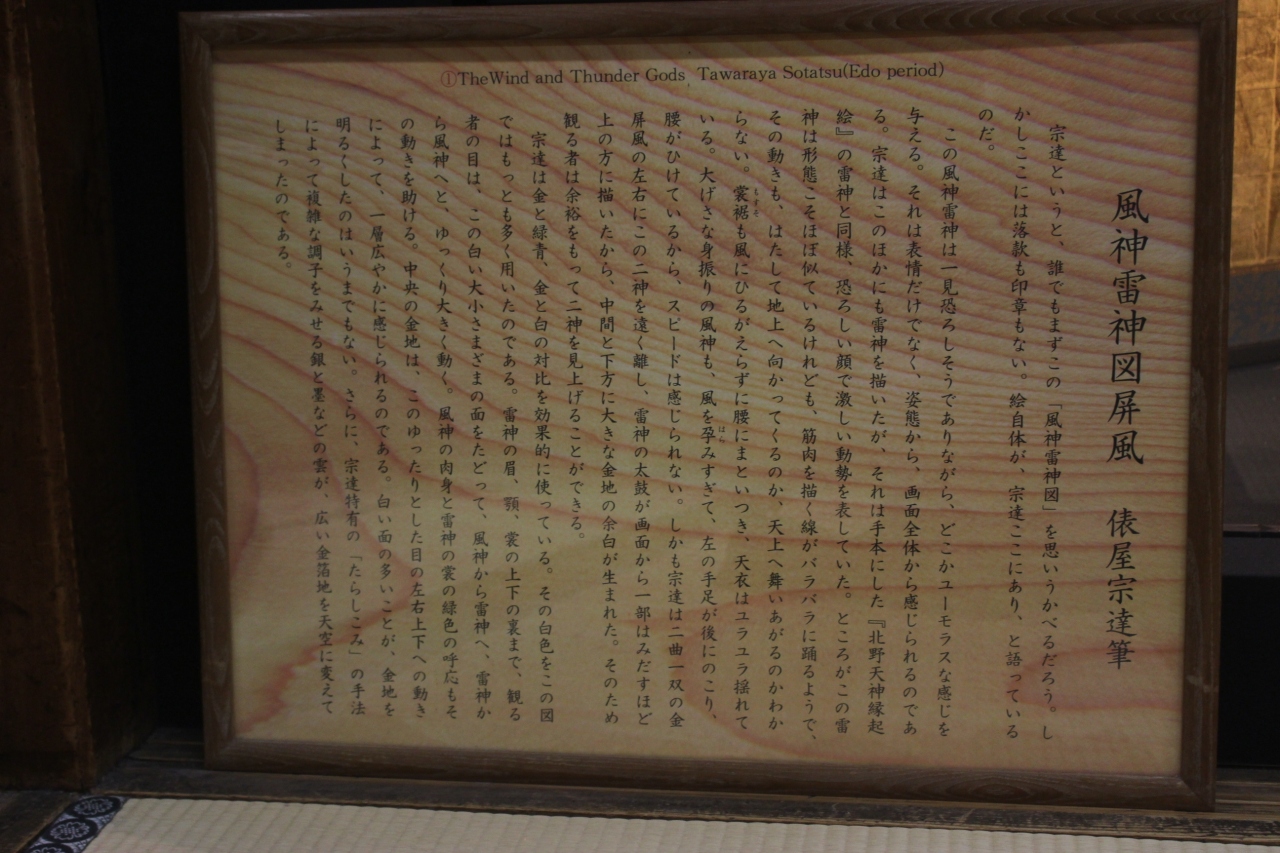 ①TheWind and Thunder Gods, Tawaraya Sotatsu(Edo period)
風神雷神図屏風　俵屋宗達筆
宗達というと、誰でもまずこの「風神雷神図」を思いうかべるだろう。し
かしここには落款も印章もない。絵自体が、宗達ここにあり、と語っている
のだ。
この風神雷神は一見恐ろしそうでありながら、どこかユーモラスな感じを
与える。それは表情だけでなく、姿態から、画面全体から感じられるのであ
る。宗達はこのほかにも雷神を描いたが、それは手本にした『北野天神縁起
絵』の雷神と同様、恐ろしい顔で激しい動勢を表していた。ところがこの雷
神は形態こそほぼ似ているけれども、筋肉を描く線がバラバラに踊るようで、
その動きも、はたして地上へ向かってくるのか、天上へ舞いあがるのかわか
らない。裳裾も風にひるがえらずに腰にまといつき、天衣はユラユラ揺れて
いる。大げさな身振りの風神も、風を孕みすぎて、左の手足が後にのこり、
腰がひけているから、スピードは感じられない。しかも宗達は二曲一双の金
屏風の左右にこの二神を遠く離し、雷神の太鼓が画面から一部はみだすほど
上の方に描いたから、中間と下方に大きな金地の余白が生まれた。そのため
観る者は余裕をもって二神を見上げることができる。
宗達は金と緑青、金と白の対比を効果的に使っている。その白色をこの図
ではもっとも多く用いたのである。雷神の眉、顎、裳の上下の裏まで、観る
者の目は、この白い大小さまざまの面をたどって、風神から雷神へ、雷神か
ら風神へと、ゆっくり大きく動く。風神の肉身と雷神の裳の緑色の呼応もそ
の動きを助ける。中央の金地は、このゆったりとした目の左右上下への動き
によって、一層広やかに感じられるのである。白い面の多いことが、金地を
明るくしたのはいうまでもない。さらに、宗達特有の「たらしこみ」の手法
によって複雑な調子をみせる銀と墨などの雲が、広い金箔地を天空に変えて
しまったのである。